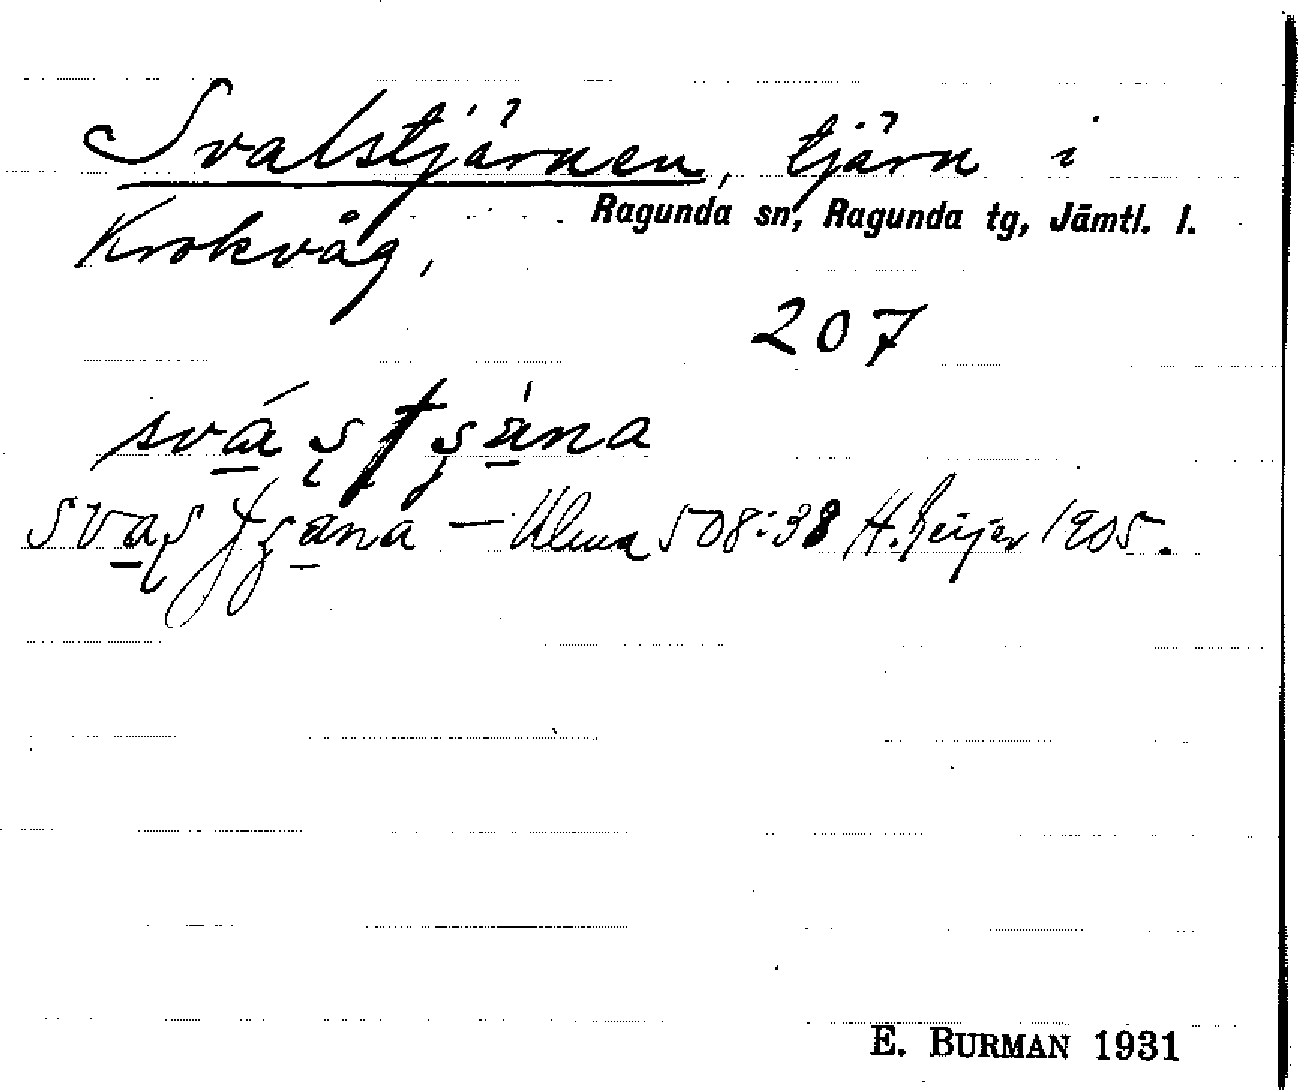 Svalstjärnen, tjärn i
Ragunda sn, Ragunda tg, Jämtl. l.
Krokvåg,
207
— Ulma 508:38 H. Geijer 1905.
E. BURMAN 1931